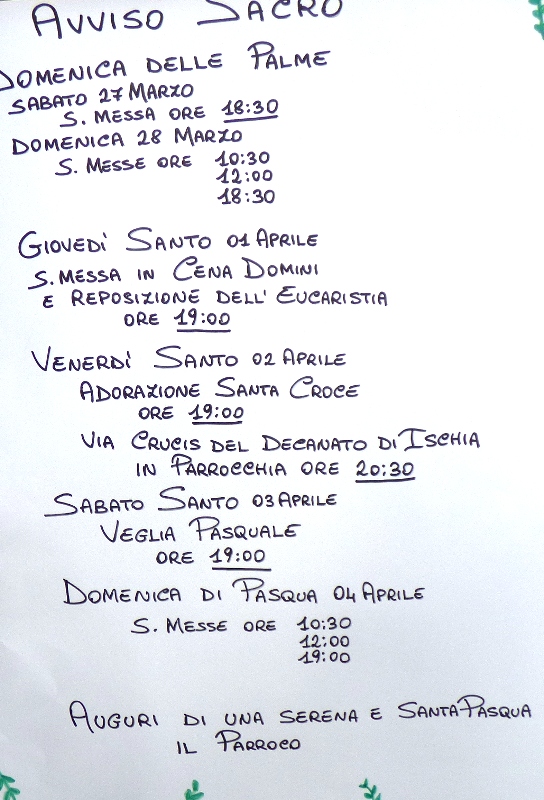 AVVISO SACRO
DOMENICA DELLE PALME
SABATO 27 MARZO
S. MESSA ORE 18:30
DOMENICA 28 MARZO
S. MESSE ORE 10:30
12:00
18:30
GIOVEDÌ SANTO 01 APRILE
S. MESSA IN CENA DOMINI
E REPOSIZIONE DELL' EUCARISTIA
ORE 19:00
VENERDÌ SANTO 02 APRILE
ADORAZIONE SANTA CROCE
ORE 19:00
VIA CRUCIS DEL DECANATO DI ISCHIA
IN PARROCCHIA ORE 20:30
SABATO SANTO 03 APRILE
VEGLIA PASQUALE
ORE 19:00
DOMENICA DI PASQUA 04 APRILE
S. MESSE ORE 10:30
12:00
19:00
AUGURI DI UNA SERENA E SANTA PASQUA
IL PARROCO